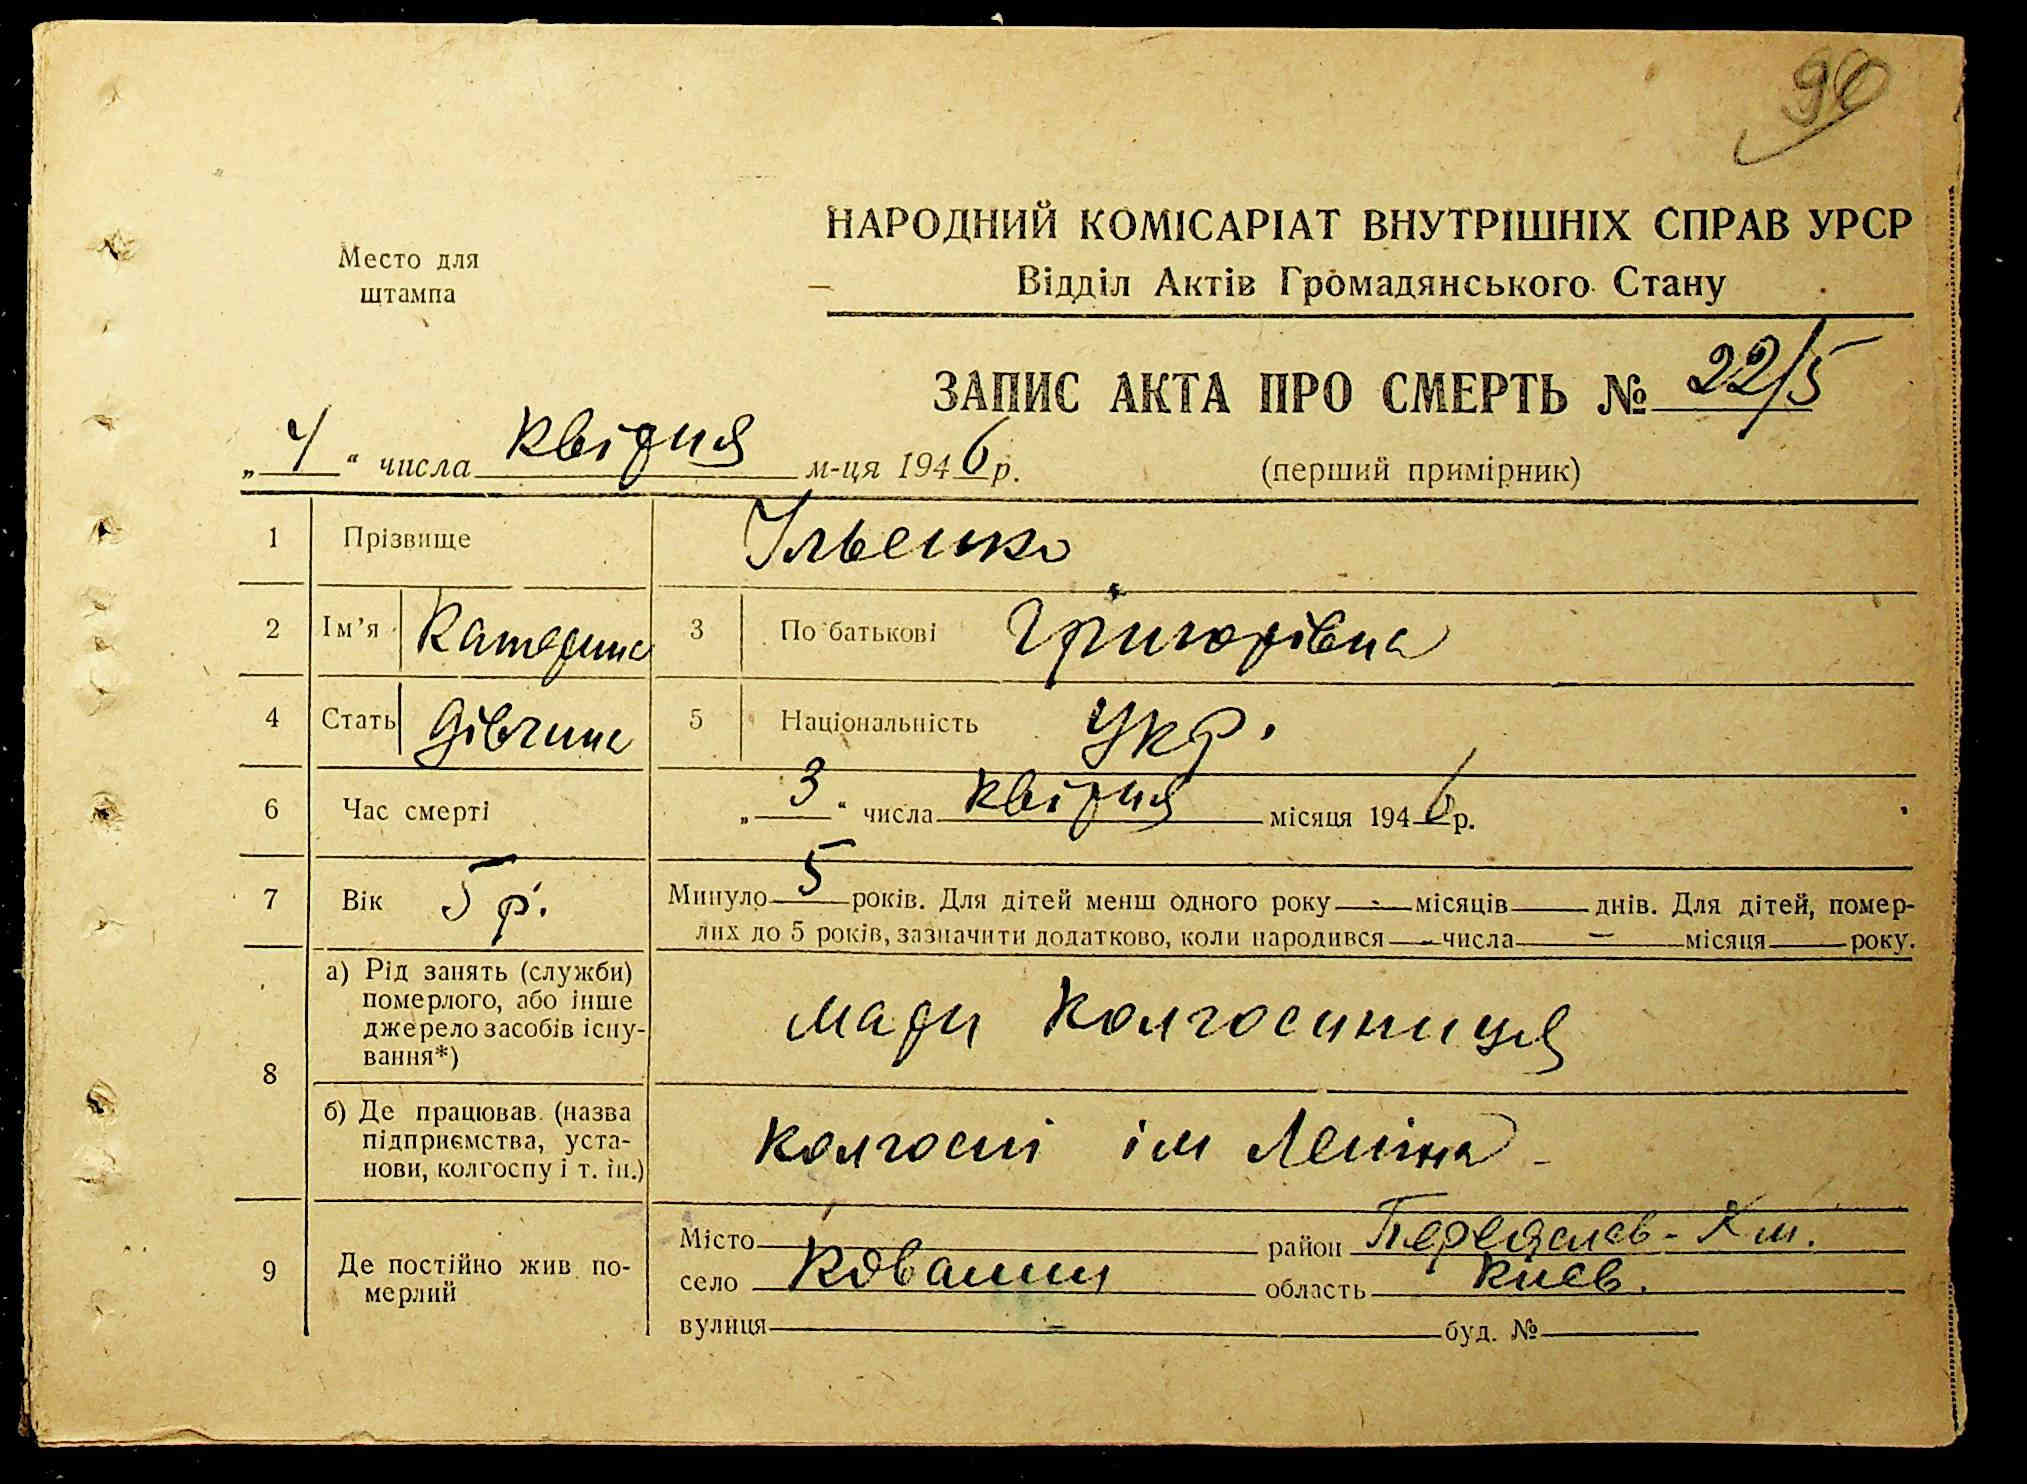 90
НАРОДНИЙ КОМІСАРІАТ ВНУТРІШНІХ СПРАВ УРСР
Место для
штампа
Відділ Актів Громадянського Стану
ЗАПИС АКТА ПРО СМЕРТЬ № 22/5
„4“ числа квітня м-ця 1946 р. (перший примірник)
1 Прізвище Ільенко
2 Ім'я Катерина 3 По батькові Григорівна
4 Стать дівчина 5 Національність Укр.
6 Час смерті „3“ числа квітня місяця 1946 р.
7 Вік 5 р. Минуло 5 років. Для дітей менш одного року - місяців днів. Для дітей, помер-
лих до 5 років, зазначити додатково, коли народився - числа - місяця року.
8 а) Рід занять (служби)
померлого, або інше
джерело засобів існу-
вання*)
мати колгоспниця
б) Де працював (назва
підприємства, уста-
нови, колгоспу і т. ін.)
колгоспі ім Леніна
9 Де постійно жив по-
мерлий
Місто район Переяслав-Хм.
село Ковалин область Києв.
вулиця - буд. №